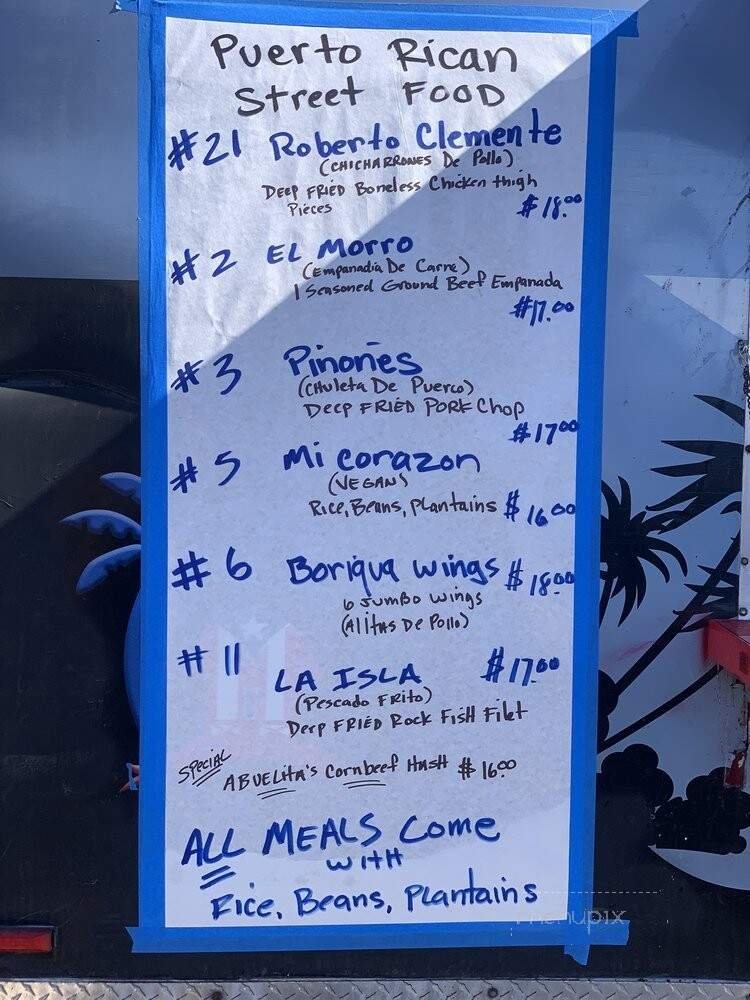 Puerto Rican
Street FOOD
#21 Roberto Clemente
(CHICHARRONES De Pollo)
DEEP FRIED Boneless Chicken thigh
Pieces
$18.00
#2 EL Morro
(Empanadia De Carne)
1 Seasoned Ground Beef Empanada
$17.00
#3 Piñones
(Chuleta De Puerco)
Deep FRIED PORK Chop
$17.00
#5 Mi corazon
(VEGAN)
Rice, Beans, Plantains $16.00
#6 Boriqua wings $18.00
6 Jumbo wings
(Alitas De Pollo)
#11
LA ISLA $17.00
(Pescado Frito)
Deep FRIED Rock Fish Filet
Special
ABUELita's Cornbeef Hash $16.00
ALL MEALS Come
WITH
Rice, Beans, Plantains
menupix